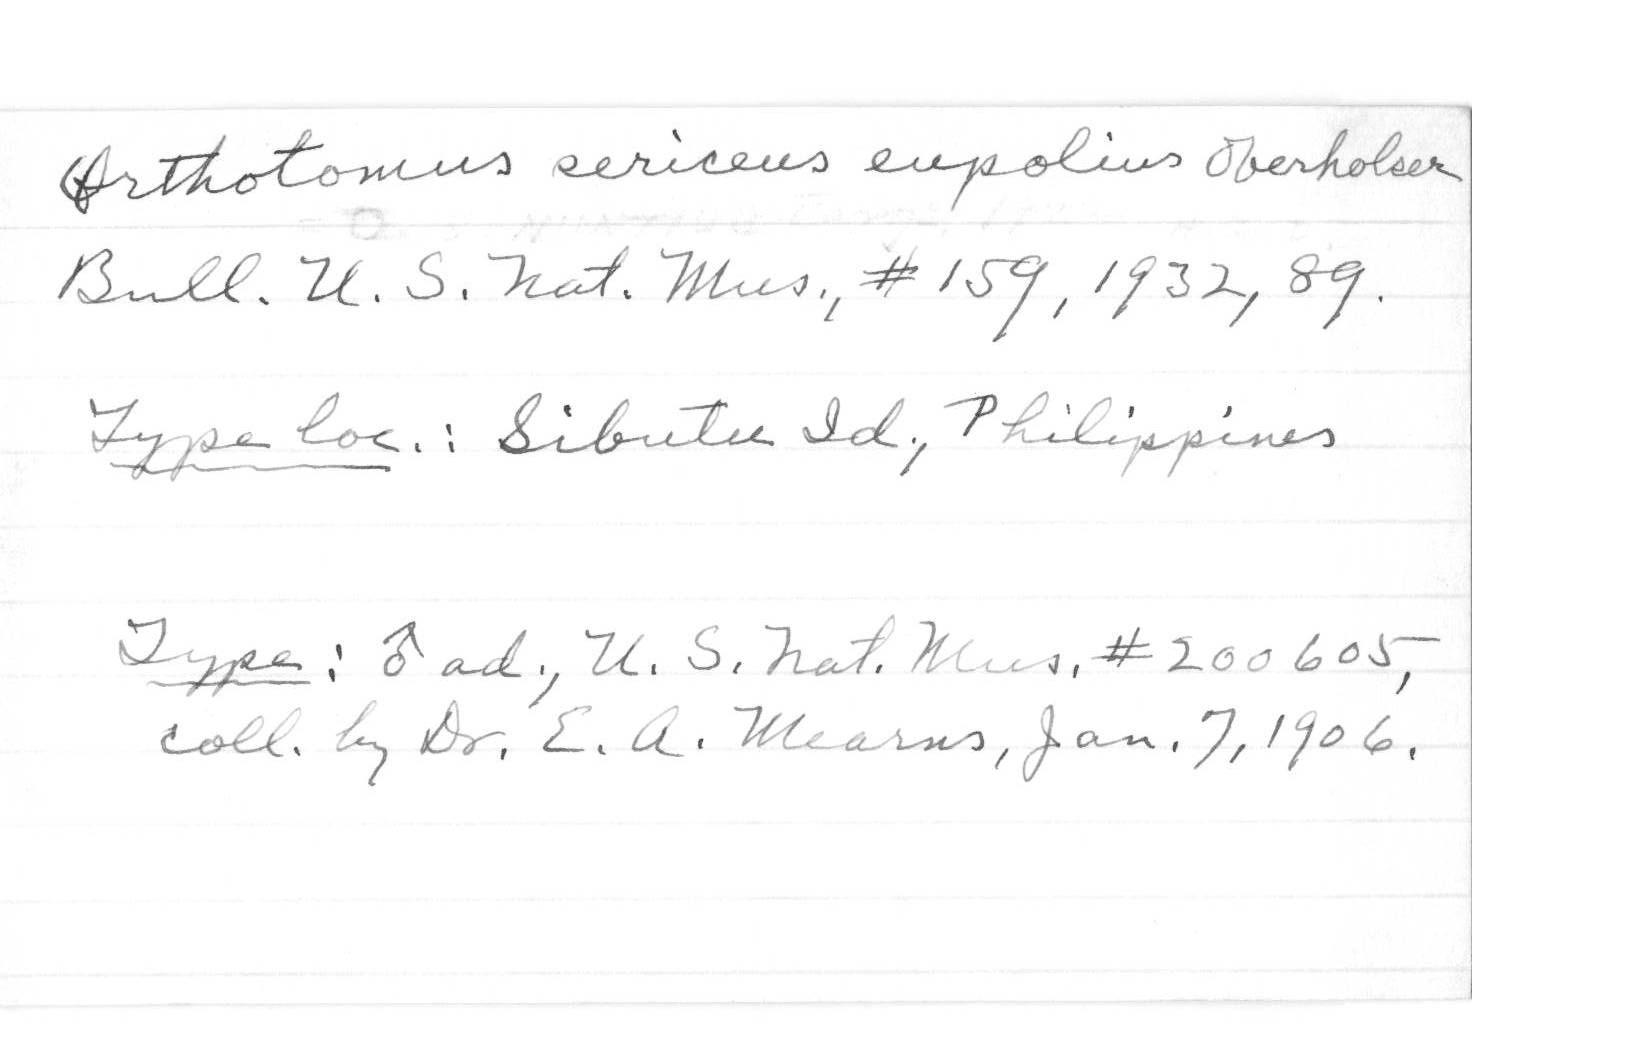 Orthotomus sericeus eupolius Oberholser
Bull. U. S. Nat. Mus., #159, 1932, 89.
Type loc.: Sibutu Id., Philippines
Type: ♂ ad., U. S. Nat. Mus. #200605,
coll. by Dr. E. A. Mearns, Jan. 7, 1906.